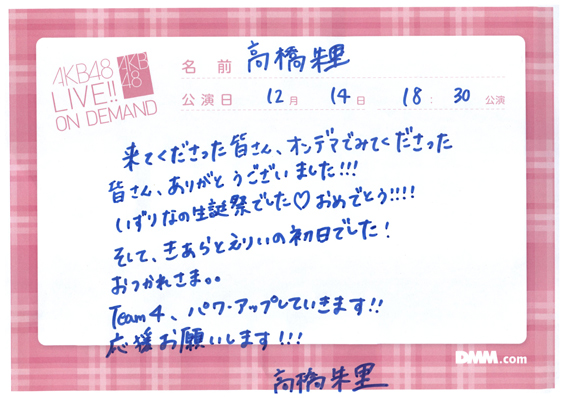 AKB48
LIVE!!
ON DEMAND
AKB
48
名前 高橋朱里
公演日 12月 14日 18:30公演
来てくださった皆さん、オンデマでみてくださった
皆さん、ありがとうございました!!!
いずりなの生誕祭でした♡おめでとう!!!!
そして、きあらとえりいの初日でした!
おつかれさま。。
Team4、パワーアップしていきます!!
応援お願いします!!!
高橋朱里
DMM.com